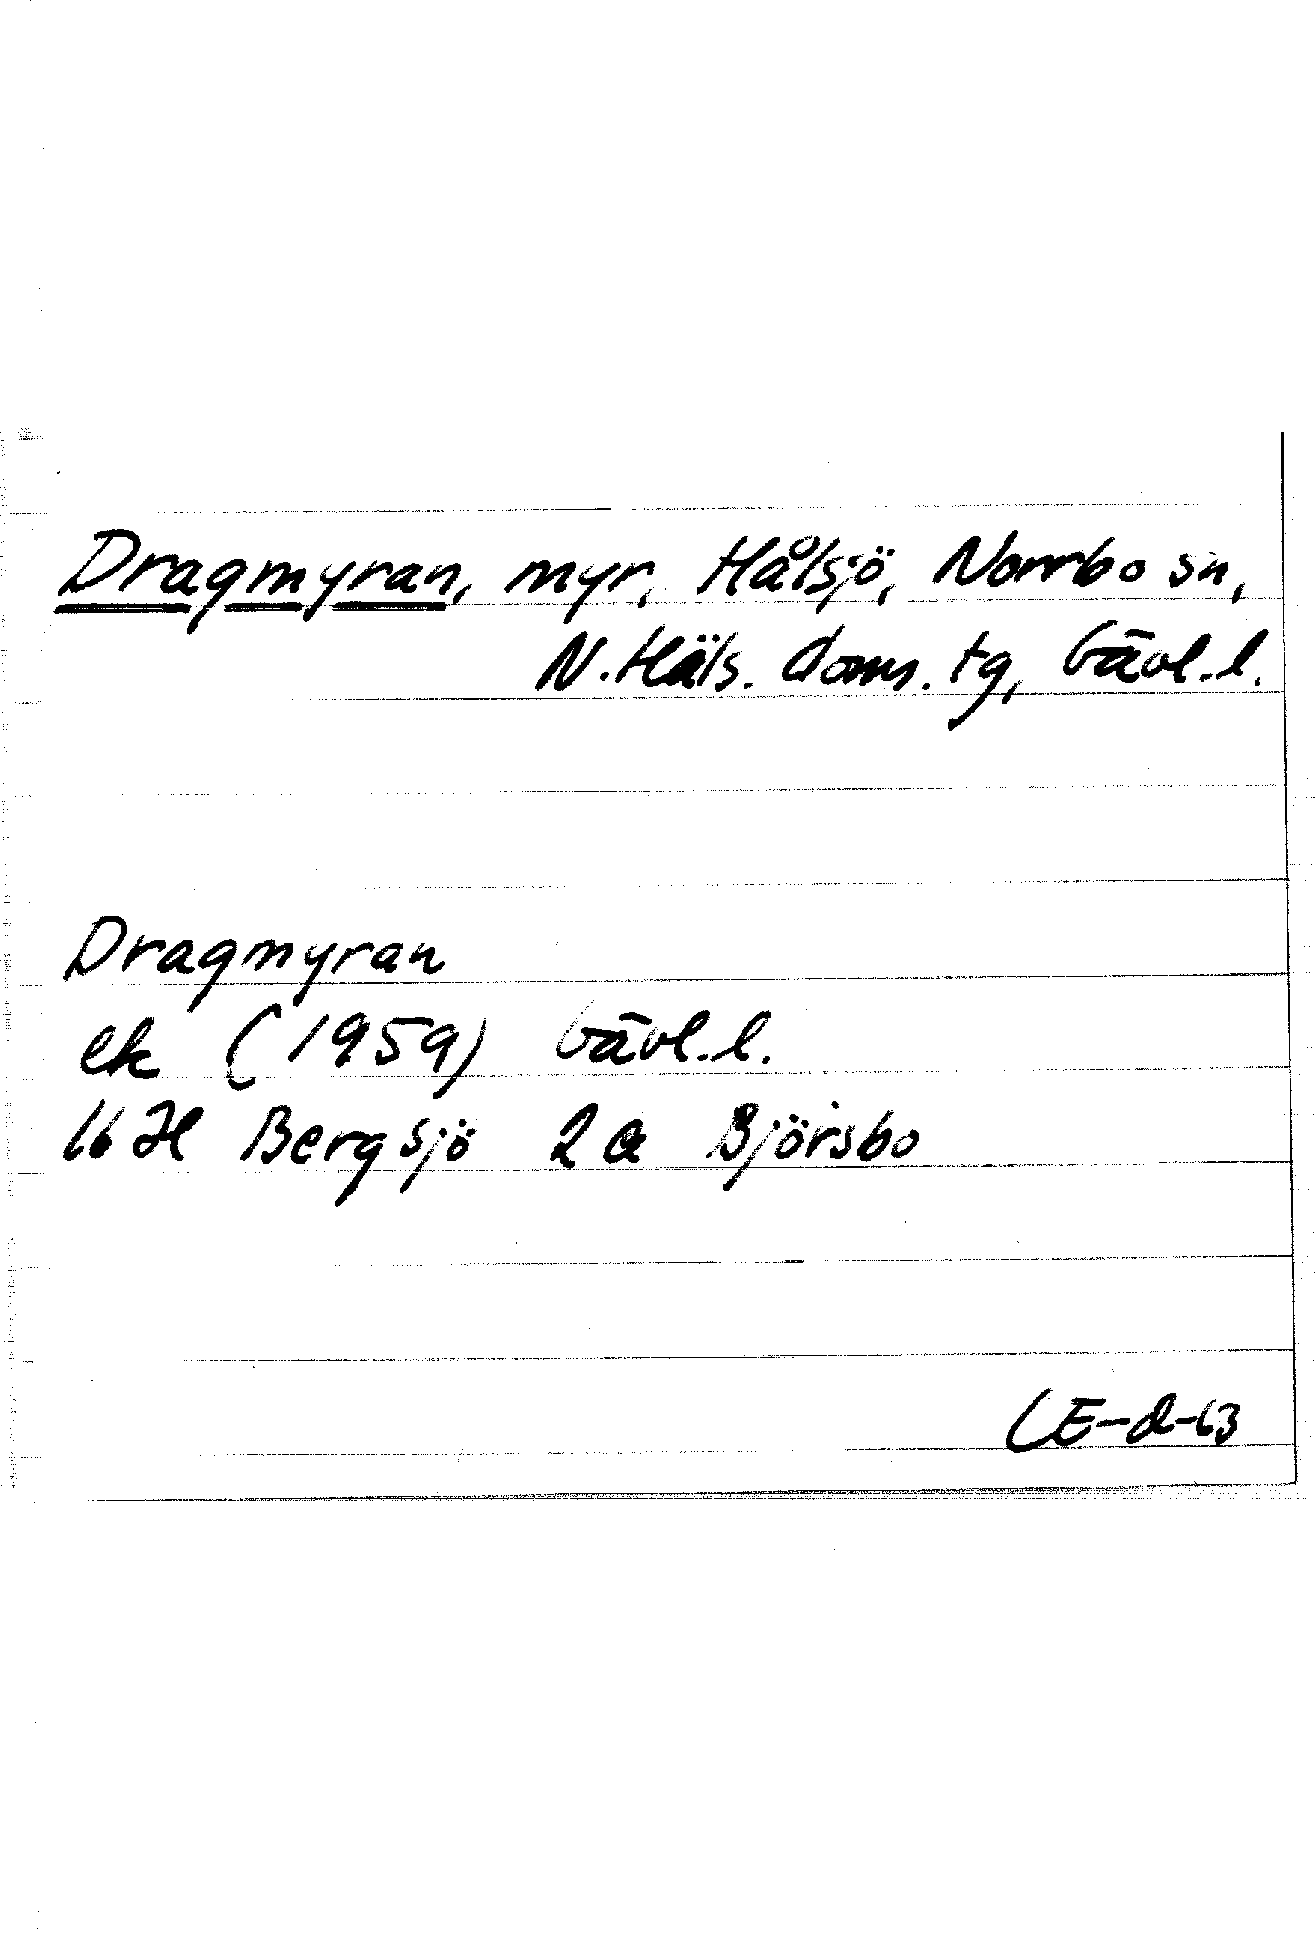 Dragmyran, myr, Hålsjö, Norrbo sn,
N. Häls. doms. tg, Gävl. l.
Dragmyran
ek (1959) Gävl. l.
16 H Bergsjö 2 a Björsbo